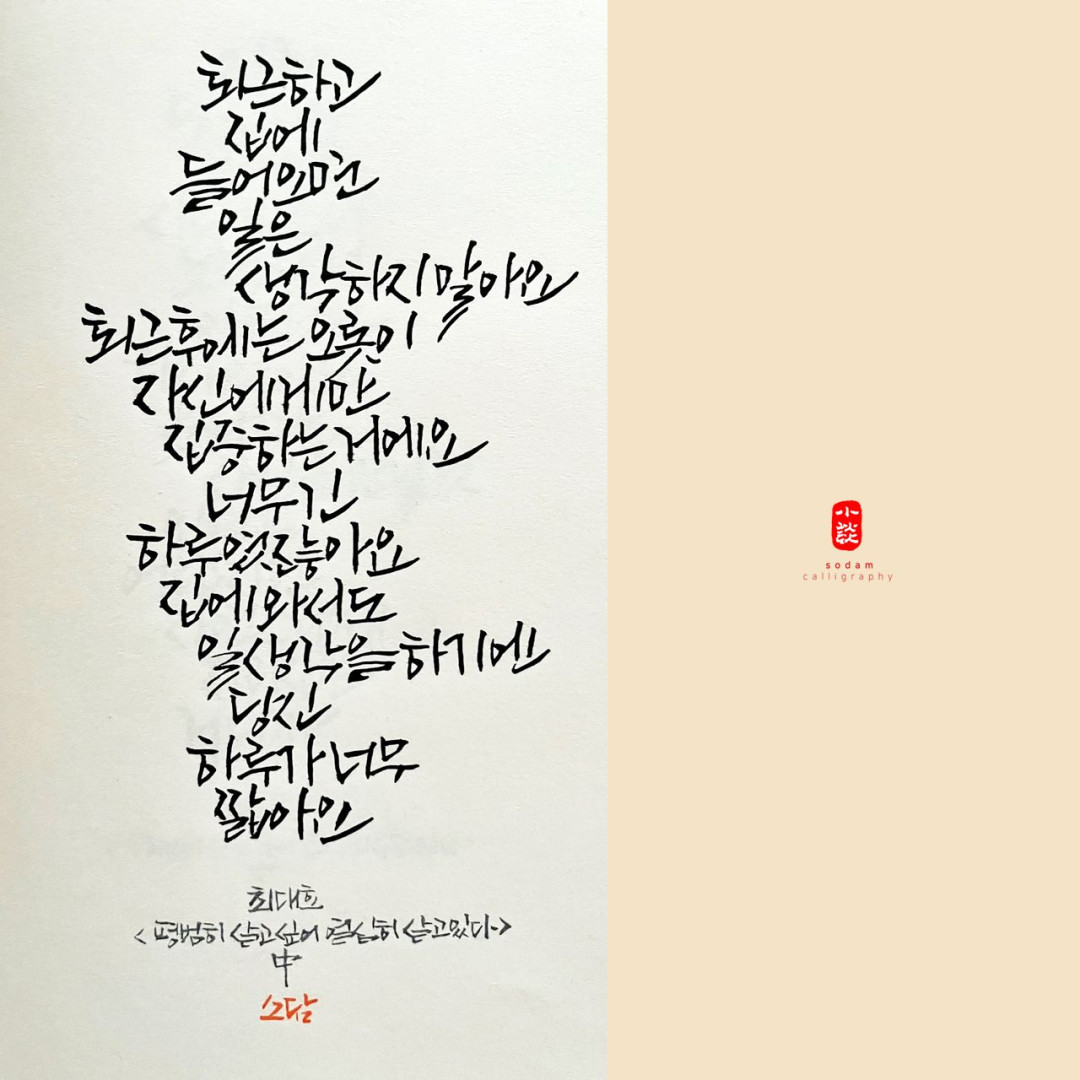 퇴근하고
집에
들어오면
일은
생각하지 말아요
퇴근 후에는 오롯이
자신에게만
집중하는 거에요
너무 긴
하루였잖아요
집에 와서도
일 생각을 하기엔
당신
하루가 너무
짧아요
최대호
<평범히 살고 싶어 열심히 살고 있다>
中
소담
小談
sodam
calligraphy